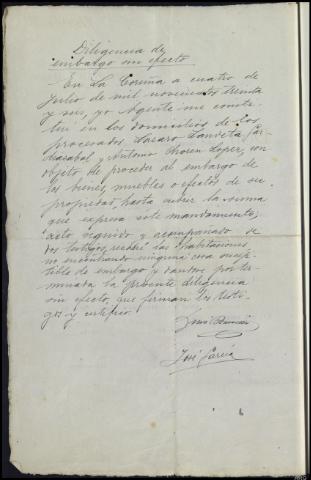 Diligencia de
embargo sin efecto
En La Coruña a cuatro de
Julio de mil novecientos treinta
y seis, yo Agente me consti-
tui en los domicilios de los
procesados Lázaro Landeta
y Antonio Lopez, con
objeto de proceder al embargo de
los bienes, muebles o efectos de su
propiedad, hasta cubrir la suma
que expresa este mandamiento;
acto seguido y acompañado de
dos testigos, recorrí las habitaciones
no encontrando ninguna cosa suscep-
tible de embargo y dando por ter-
minada la presente diligencia
sin efecto, que firman los testi-
gos y certifico.
José
José García